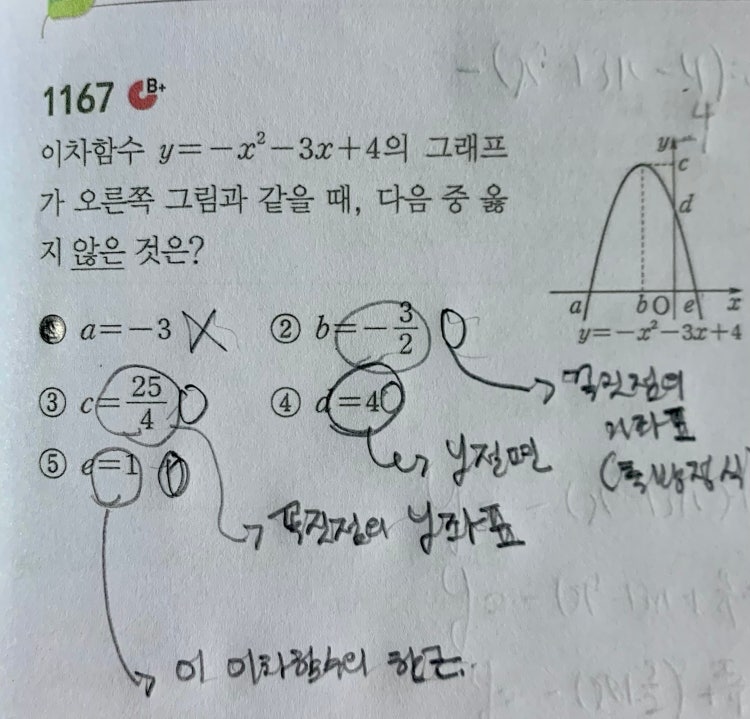 1167 B+
이차함수 y=-x²-3x+4의 그래프
가 오른쪽 그림과 같을 때, 다음 중 옳
지 않은 것은?
y
c
d
a b O e x
y=-x²-3x+4
① a=-3 X ② b=-3/2 O
③ c=25/4 O ④ d=4 O
⑤ e=1 O
꼭짓점의
x좌표
(축방정식
y절편
꼭짓점의 y좌표
이 이차함수의 한근.